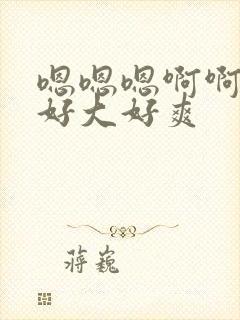 嗯嗯嗯啊啊
好大好爽
蒋巍